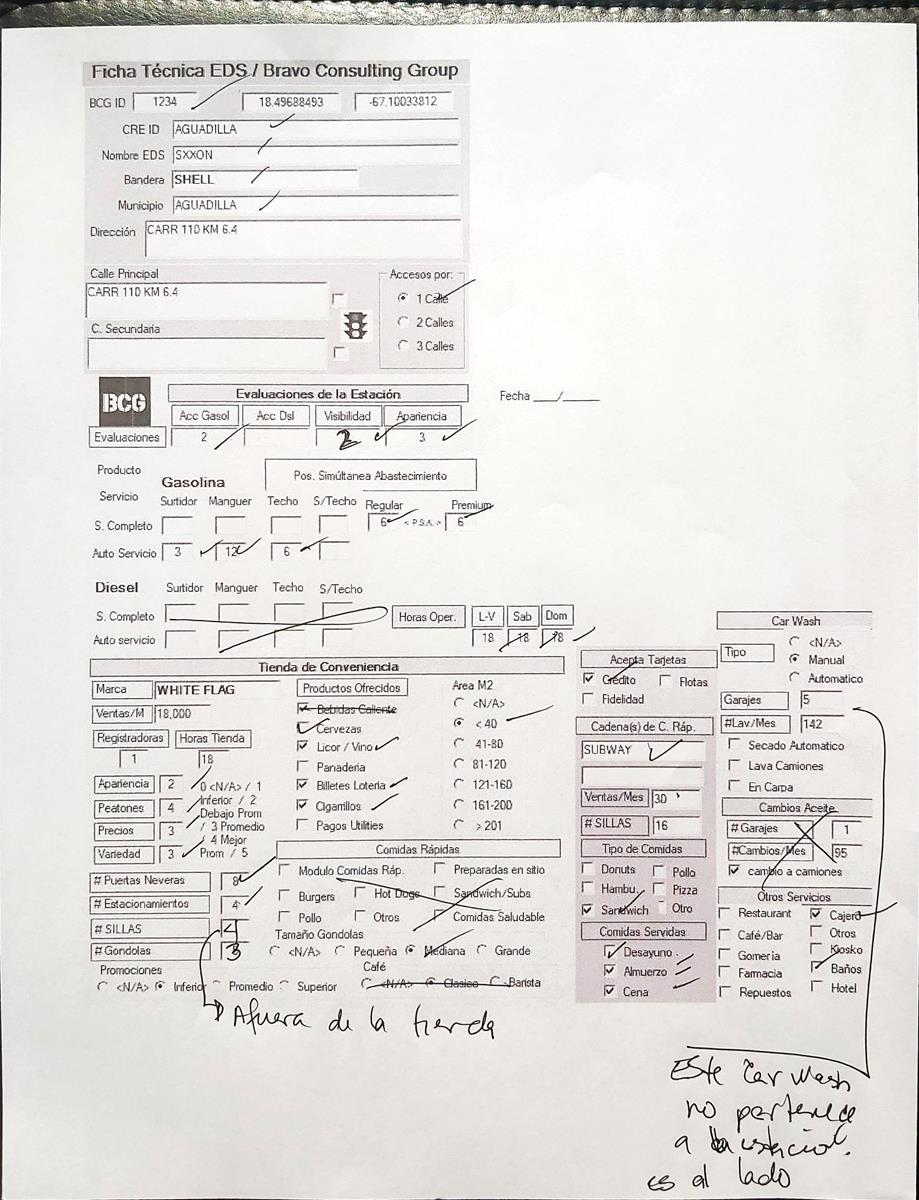 Ficha Técnica EDS / Bravo Consulting Group
BCG ID 1234 18.49688493 -67.10033812
CRE ID AGUADILLA
Nombre EDS SXXON
Bandera SHELL
Municipio AGUADILLA
Dirección CARR 110 KM 6.4
Calle Principal
CARR 110 KM 6.4
C. Secundaria
Accesos por:
1 Calle
2 Calles
3 Calles
BCG
Evaluaciones de la Estación
Fecha ___/___
Acc Gasol Acc Dsl Visibilidad Apariencia
Evaluaciones 2 2 3
Producto
Gasolina
Pos. Simúltanea Abastecimiento
Servicio Surtidor Manguer Techo S/Techo Regular Premium
S. Completo 6 < P.S.A. > 6
Auto Servicio 3 12 6
Diesel Surtidor Manguer Techo S/Techo
S. Completo
Auto servicio
Horas Oper. L-V Sab Dom
18 18 18
Tienda de Conveniencia
Marca WHITE FLAG
Ventas/M 18,000
Registradoras Horas Tienda
1 18
Apariencia 2 0 <N/A> / 1
Peatones 4 Inferior / 2
Debajo Prom
Precios 3 / 3 Promedio
/ 4 Mejor
Variedad 3 Prom / 5
# Puertas Neveras 8
# Estacionamientos 4
# SILLAS
# Gondolas 3
Promociones
<N/A> Inferior Promedio Superior
Productos Ofrecidos
Bebidas Caliente
Cervezas
Licor / Vino
Panaderia
Billetes Loteria
Cigarrillos
Pagos Utilities
Area M2
<N/A>
< 40
41-80
81-120
121-160
161-200
> 201
Comidas Rápidas
Modulo Comidas Ráp. Preparadas en sitio
Burgers Hot Dogs Sandwich/Subs
Pollo Otros Comidas Saludable
Tamaño Gondolas
<N/A> Pequeña Mediana Grande
Café
<N/A> Clasico Barista
Acepta Tarjetas
Crédito Flotas
Fidelidad
Cadena(s) de C. Ráp.
SUBWAY
Ventas/Mes 30
# SILLAS 16
Tipo de Comidas
Donuts Pollo
Hambu. Pizza
Sandwich Otro
Comidas Servidas
Desayuno
Almuerzo
Cena
Car Wash
Tipo
<N/A>
Manual
Automatico
Garajes 5
#Lav/Mes 142
Secado Automatico
Lava Camiones
En Carpa
Cambios Aceite
# Garajes 1
#Cambios/Mes 95
cambio a camiones
Otros Servicios
Restaurant Cajero
Café/Bar Otros
Gomeria Kiosko
Farmacia Baños
Repuestos Hotel
Afuera de la tienda
Este Car Wash
no pertenece
a la estación.
es al lado